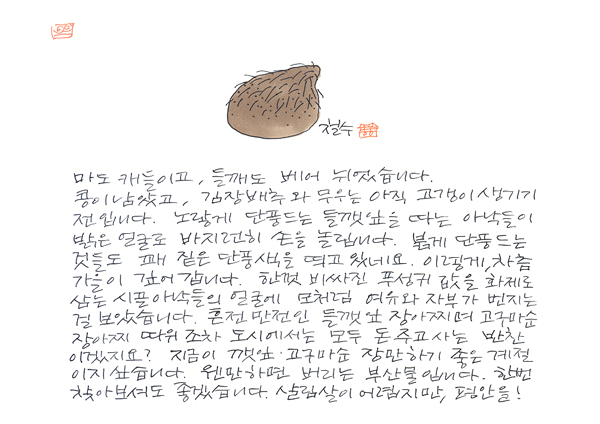 철수
마도 캐들이고, 들깨도 베어 뉘였습니다.
콩이 남았고, 김장배추와 무우는 아직 고갱이 생기기
전입니다. 노랗게 단풍드는 들깻잎을 따는 아낙들이
밝은 얼굴로 바지런히 손을 놀립니다. 붉게 단풍드는
것들도 꽤 짙은 단풍색을 띄고 있네요. 이렇게, 차츰
가을이 깊어 갑니다. 한껏 비싸진 푸성귀 값을 화제로
삼는 시골아낙들의 얼굴에 모처럼 여유와 자부가 번지는
걸 보았습니다. 흔전만전인 들깻잎 장아찌며 고구마순
장아찌 따위조차 도시에서는 모두 돈주고 사는 반찬
이겠지요? 지금이 깻잎·고구마순 장만하기 좋은 계절
이지 싶습니다. 웬만하면 버리는 부산물입니다. 한번
찾아보셔도 좋겠습니다. 살림살이 어렵지만, 평안을!